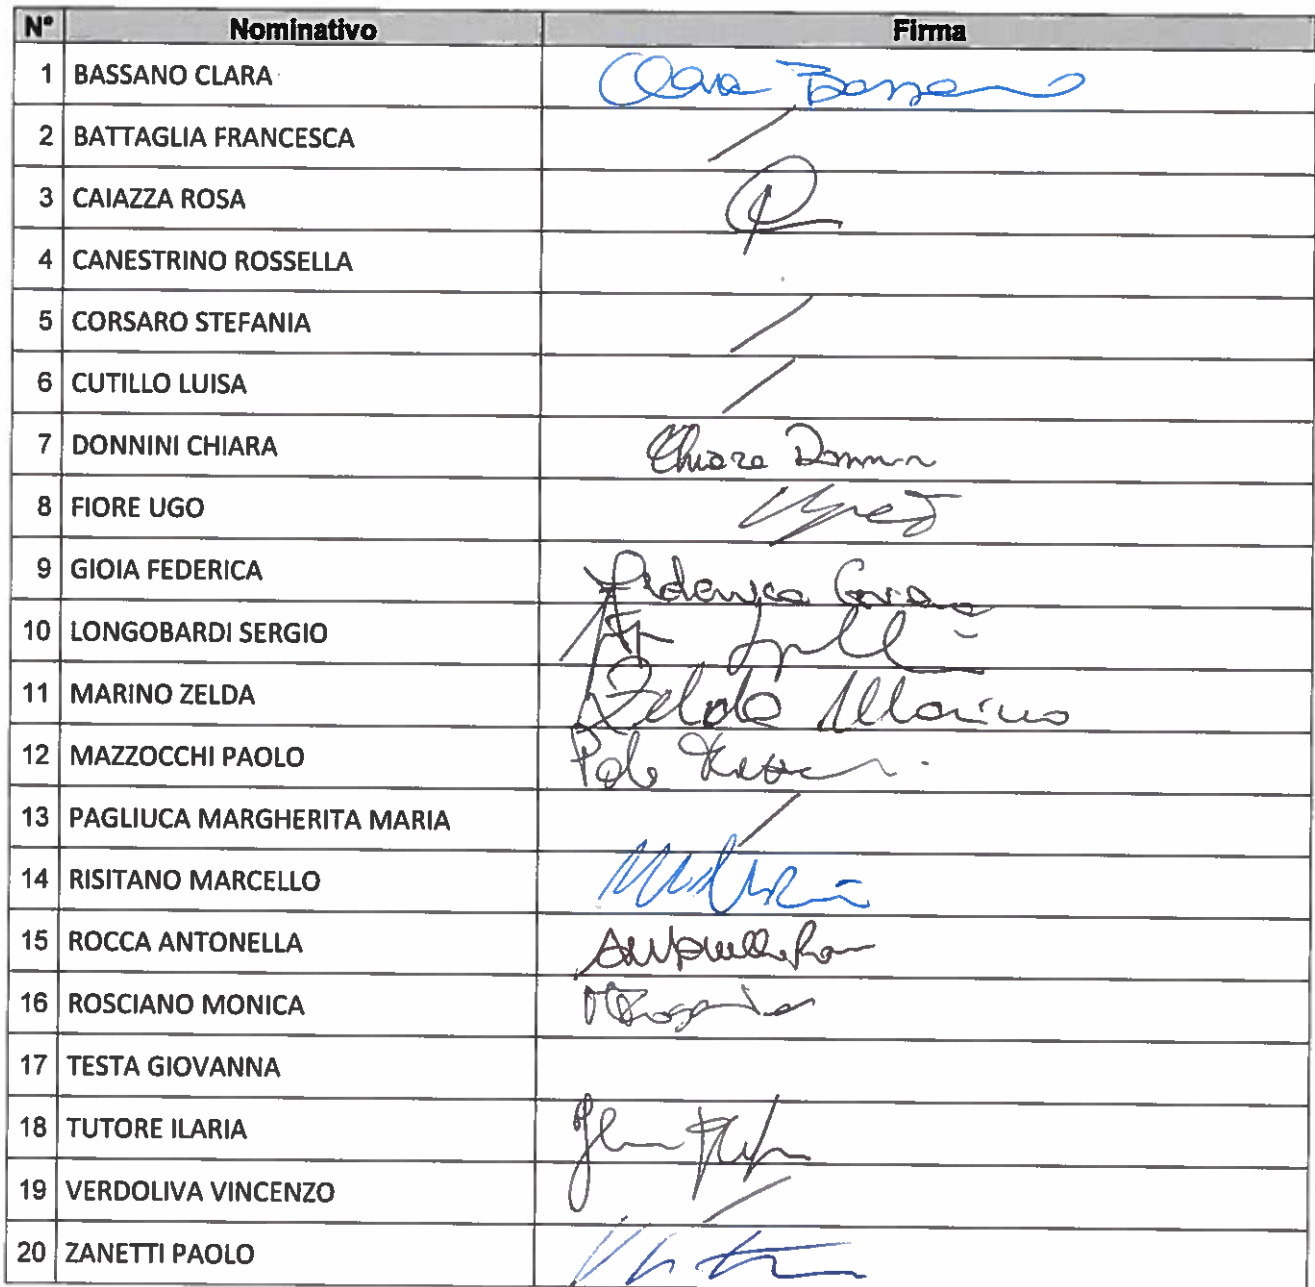 N° Nominativo Firma
1 BASSANO CLARA Clara Bassano
2 BATTAGLIA FRANCESCA /
3 CAIAZZA ROSA
4 CANESTRINO ROSSELLA
5 CORSARO STEFANIA /
6 CUTILLO LUISA /
7 DONNINI CHIARA Chiara Donnini
8 FIORE UGO
9 GIOIA FEDERICA Federica Gioia
10 LONGOBARDI SERGIO
11 MARINO ZELDA Zelda Marino
12 MAZZOCCHI PAOLO
13 PAGLIUCA MARGHERITA MARIA /
14 RISITANO MARCELLO
15 ROCCA ANTONELLA
16 ROSCIANO MONICA
17 TESTA GIOVANNA
18 TUTORE ILARIA
19 VERDOLIVA VINCENZO /
20 ZANETTI PAOLO